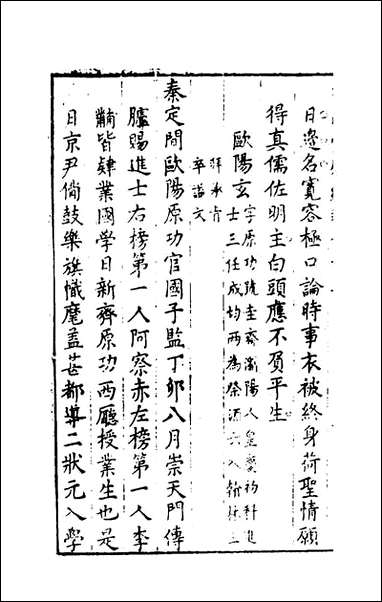 日邊名寛容極口論時事衣被終身荷聖情願
得真儒佐明主白頭應不負平生
歐陽玄字原功號圭齋瀏陽人皇慶初科進
士三任成均兩為祭酒六入翰林三
拜承旨
卒諡文
泰定間歐陽原功官國子監丁卯八月崇天門傳
臚賜進士右榜第一人阿察赤左榜第一人李
黼皆肄業國學日新齊原功西廳授業生也是
日京尹備鼓樂旗幟麾盖甚都導二狀元入學